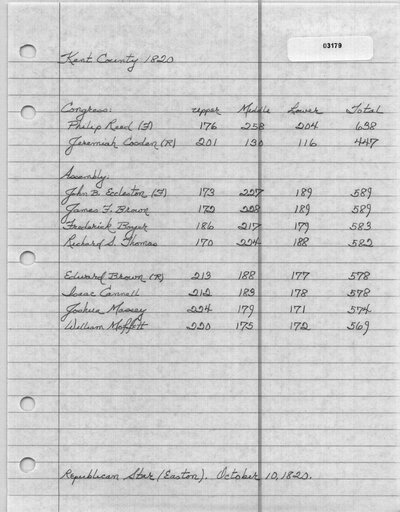 03179
Kent County 1820
Congress: Upper Middle Lower Total
Philip Reed (F) 176 258 204 638
Jeremiah Cosden (R) 201 130 116 447
Assembly:
John B. Eccleston (F) 173 227 189 589
James F. Brown 172 228 189 589
Frederick Boyer 186 217 179 583
Richard S. Thomas 170 224 188 582
Edward Brown (R) 213 188 177 578
Isaac Cannell 212 189 178 578
Joshua Massey 224 179 171 574
William Moffett 220 175 172 569
Republican Star (Easton). October 10, 1820.